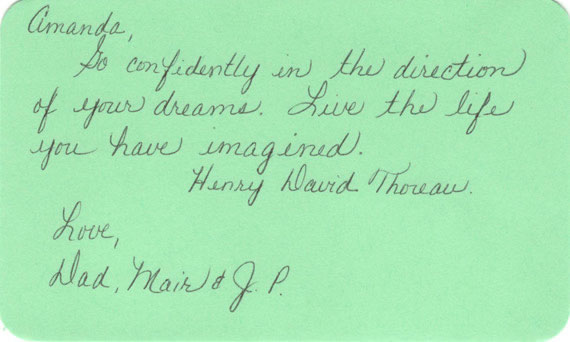 Amanda,
Go confidently in the direction
of your dreams. Live the life
you have imagined.
Henry David Thoreau.
Love,
Dad, Mair & J.P.